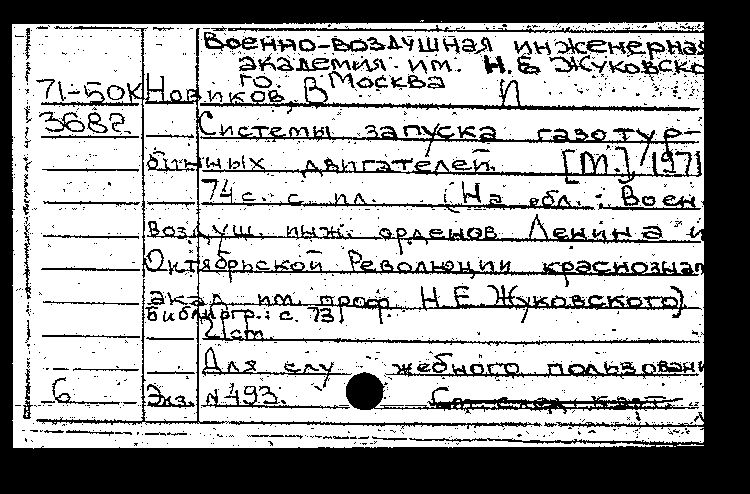 Военно-воздушная инженерная
академия им. Н.Е. Жуковско
го. Москва
71-50К Новиков, В П
3682 Системы запуска газотур-
бинных двигателей. [М.] 1971
74 с. с ил. (На обл.: Воен.-
воздуш. инж. орденов Ленина и
Октябрьской Революции краснознам
акад им. проф. Н.Е. Жуковского)
Библиогр.: с. 73
21 ст.
Для слу жебного пользовани
6 Экз. N 493. См. след. карт.